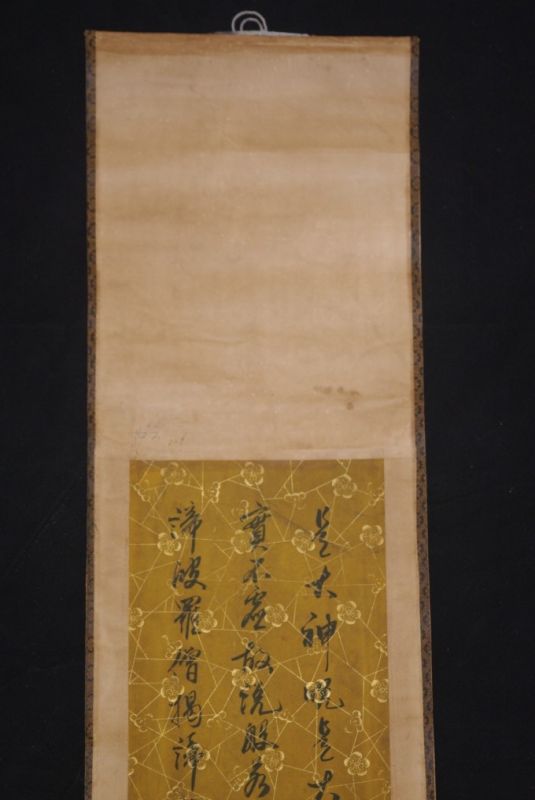 是大神呪是大
實不虛故說般若
諦波羅僧揭諦